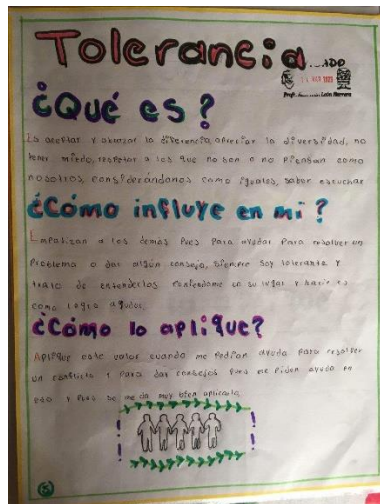 Tolerancia
¿Qué es?
Es aceptar y abrazar la diferencia, apreciar la diversidad, no
tener miedo, respetar a los que no son o no piensan como
nosotros, considerándonos como iguales, saber escuchar
¿Cómo influye en mi?
Empatizan a los demás pues para ayudar para resolver un
problema o dar algún consejo, siempre soy tolerante y
trato de entenderlos poniendome en su lugar y
como logro ayudar.
¿Cómo lo apliqué?
Aplique este valor cuando me pedian ayuda para resolver
un conflicto y para dar consejos pues me piden ayuda en
eso y pues se me da muy bien aplicarla